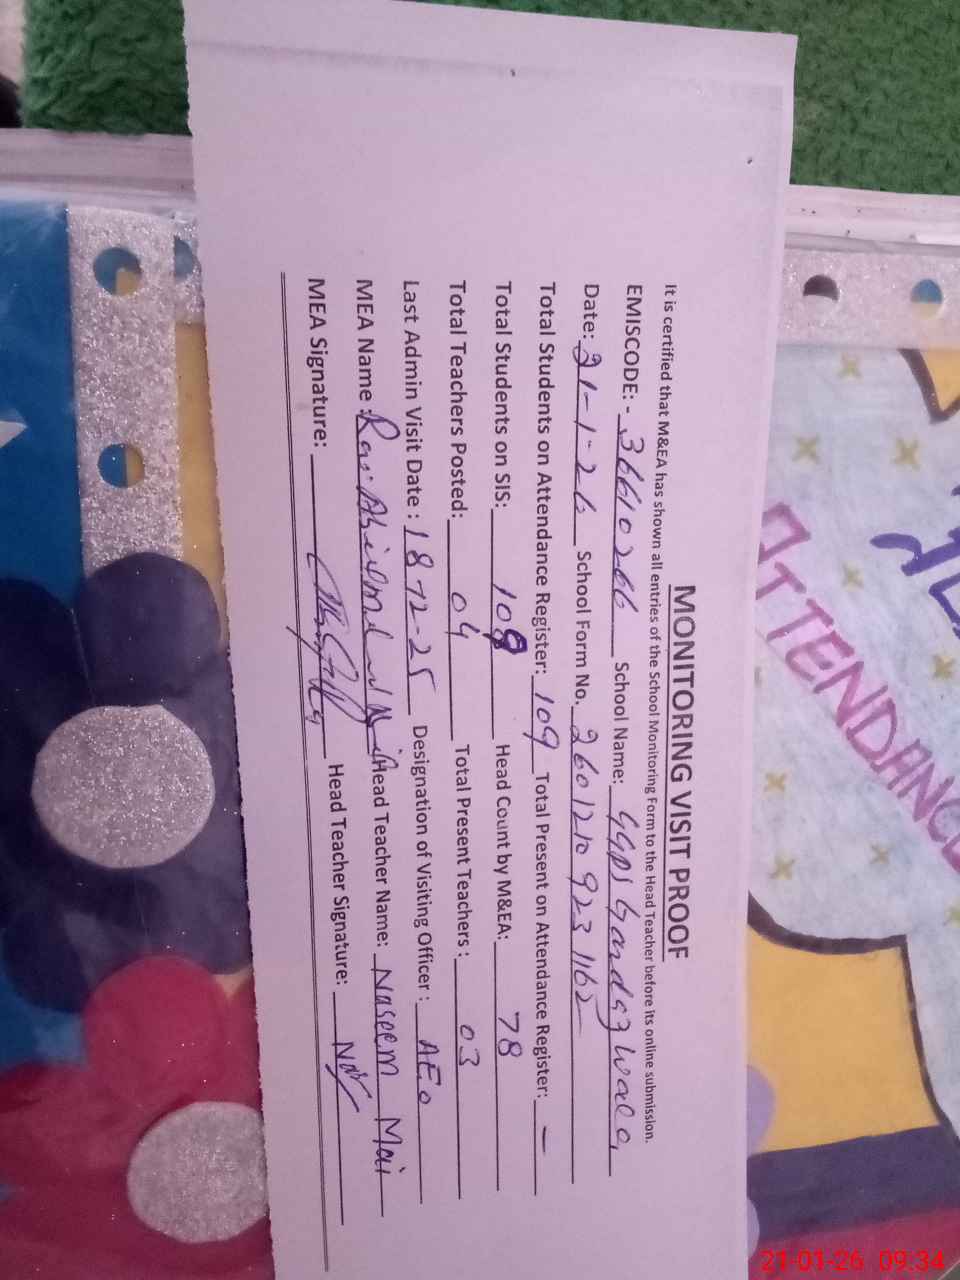 MONITORING VISIT PROOF
It is certified that M&EA has shown all entries of the School Monitoring Form to the Head Teacher before its online submission.
EMISCODE: - 36610266 School Name: GGPS
Date: 21-1-26 School Form No. 2601210 923 1162
Total Students on Attendance Register: 109 Total Present on Attendance Register: —
Total Students on SIS: 108 Head Count by M&EA: 78
Total Teachers Posted: 04 Total Present Teachers : 03
Last Admin Visit Date : 18-12-25 Designation of Visiting Officer : AEO
MEA Name : Head Teacher Name: Naseem Mai
MEA Signature: Head Teacher Signature:
ATTENDANC
21-01-26 09:34